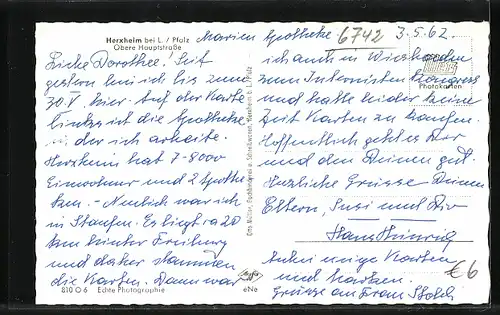 Herxheim bei L. / Pfalz
Obere Hauptstraße
Marien Apotheke 6742 3.5.62.
Liebe Dorothee! Seit
gestern bin ich bis zum
30.V. hier. Auf der Karte
links ist die Apotheke
in der ich arbeite.
Herxheim hat 7-8000
Einwohner und 2 Apothe-
ken. - Neulich war ich
in Staufen. Es liegt ca 20
km hinter Freiburg
und daher stammen
die Karten. Dann war
810 O 6 Echte Photographie
eNe
ich auch in Wiesbaden
zum Internisten Kongress
und hatte leider keine
Zeit Karten zu kaufen.
Hoffentlich geht es Dir
und den Deinen gut.
Herzliche Grüsse Deinen
Eltern, Susi und Dir
Hans Hinrich
Anbei einige Karten
und Marken.
Grüsse an Frau
Photokarten
€6